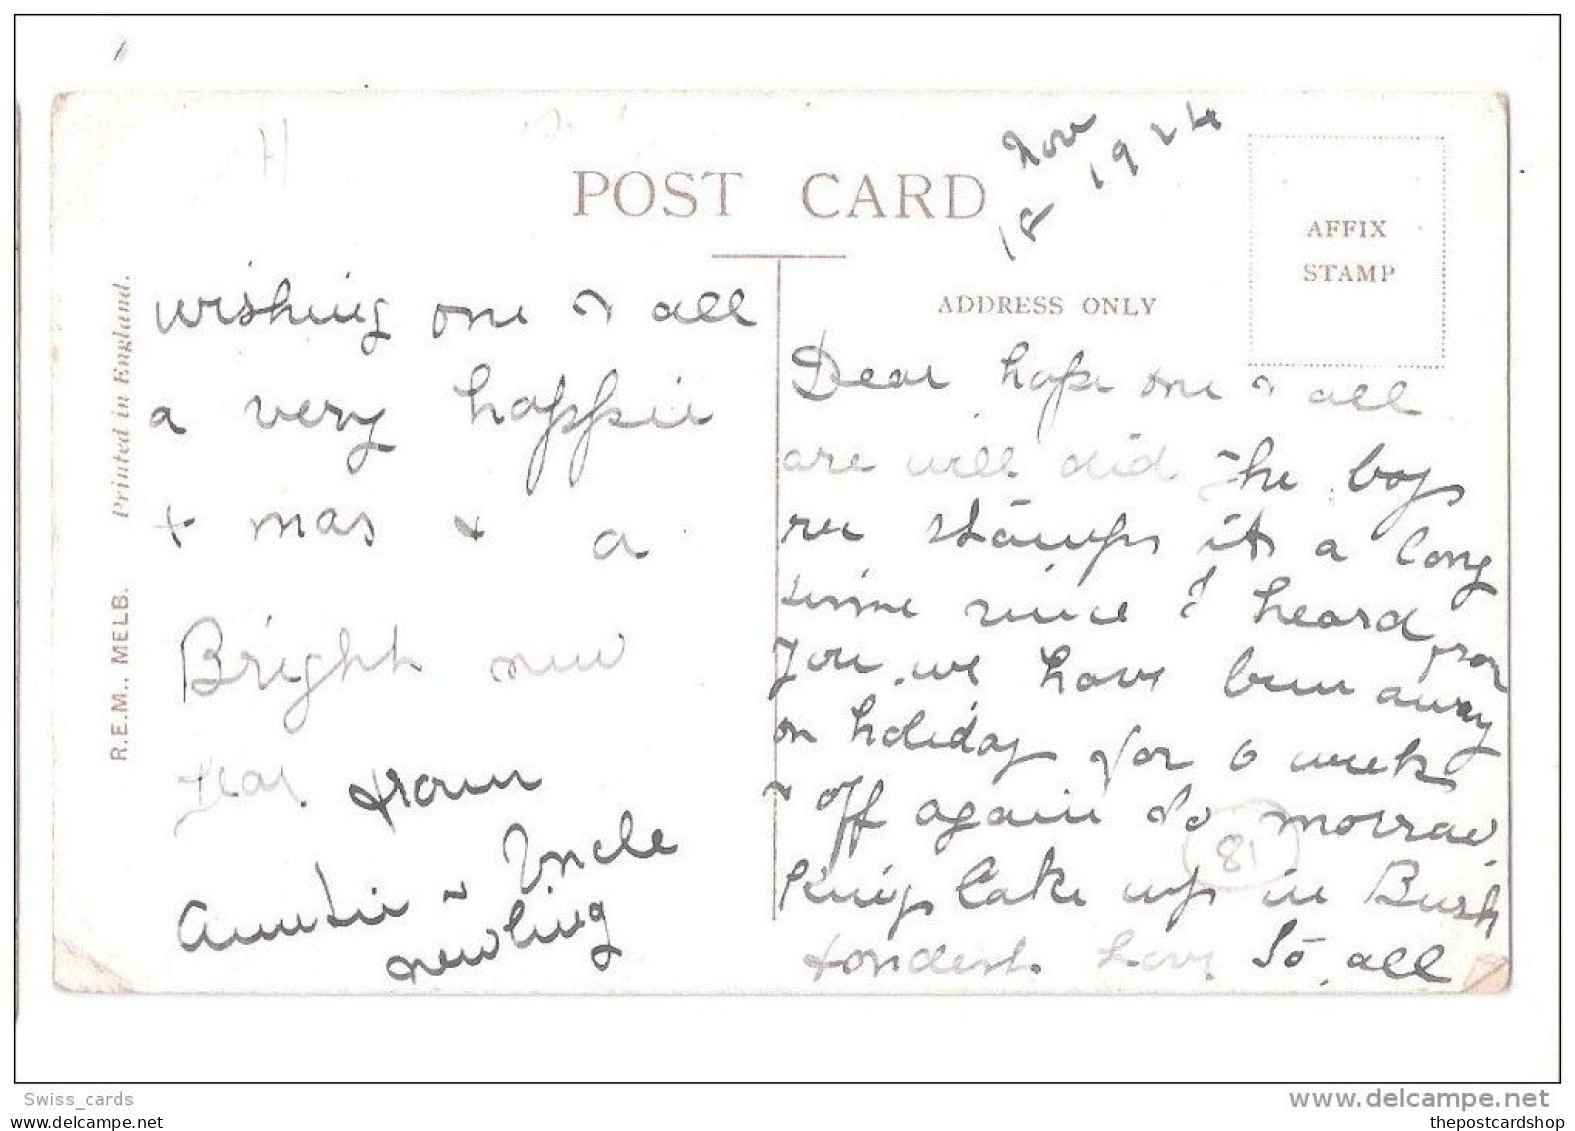 POST CARD
Nov
18 1924
AFFIX
STAMP
ADDRESS ONLY
Printed in England.
R.E.M., MELB.
wishing one & all
a very happie
x mas & a
Bright new
year from
Auntie & Uncle
newling
Dear hope one & all
are well did the boys
rec stamps its a long
time since I heard from
you. we have been away
on holiday for 6 week
& off again to morrow
King Lake up in Bush
fondest love to all
81
Swiss_cards
www.delcampe.net
the postcard shop
thepostcardshop